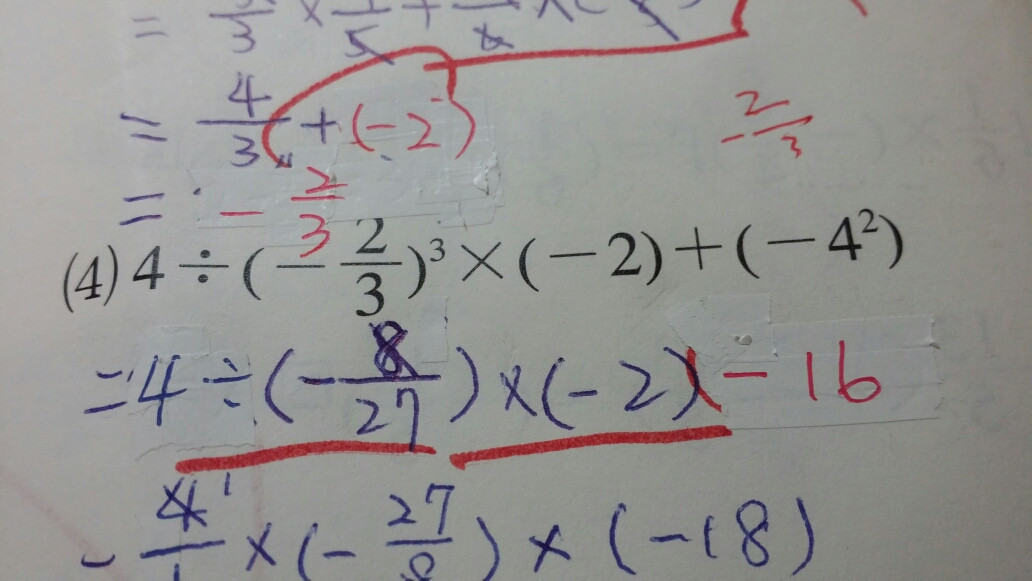 = 4/3 + (-2)
= -2/3
-2/3
(4) 4 ÷ (-2/3)³ × (-2) + (-4²)
= 4 ÷ (-8/27) × (-2) - 16
4/1 × (-27/8) × (-18)